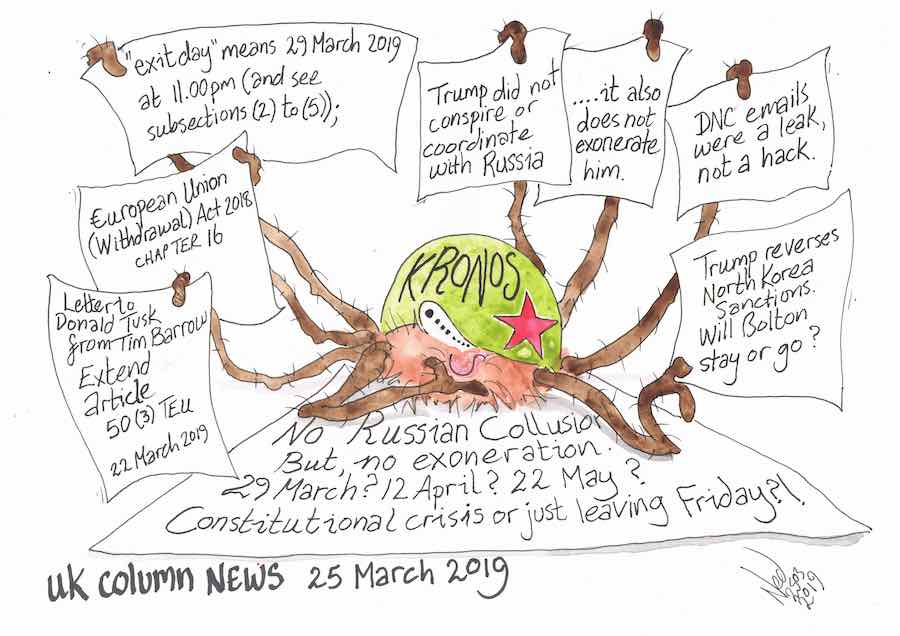 "exit day" means 29 March 2019
at 11.00pm (and see
subsections (2) to (5));
European Union
(Withdrawal) Act 2018
CHAPTER 16
Letter to
Donald Tusk
from Tim Barrow
Extend
article
50 (3) TEU
22 March 2019
Trump did not
conspire or
coordinate
with Russia
....it also
does not
exonerate
him.
DNC emails
were a leak,
not a hack.
Trump reverses
North Korea
Sanctions.
Will Bolton
stay or go?
KRONOS
No Russian Collusion
But, no exoneration.
29 March? 12 April? 22 May?
Constitutional crisis or just leaving Friday?!
UK COLUMN NEWS 25 March 2019
2019